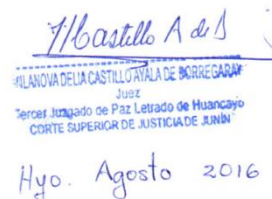 MCastillo A de B
VILANOVA DELIA CASTILLO AYALA DE BORREGARAY
Juez
Tercer Juzgado de Paz Letrado de Huancayo
CORTE SUPERIOR DE JUSTICIA DE JUNÍN
Hyo. Agosto 2016